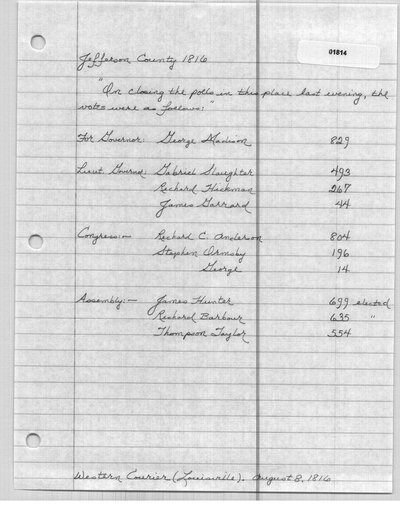 01814
Jefferson County 1816
"On closing the polls in this place last evening, the
votes were as follows:"
For Governor: George Madison 829
Lieut. Governor: Gabriel Slaughter 493
Richard Hickman 267
James Garrard 44
Congress:— Richard C. Anderson 804
Stephen Ormsby 196
George 14
Assembly:— James Hunter 699 elected
Richard Barbour 635 "
Thompson Taylor 554
Western Courier (Louisville). August 8, 1816